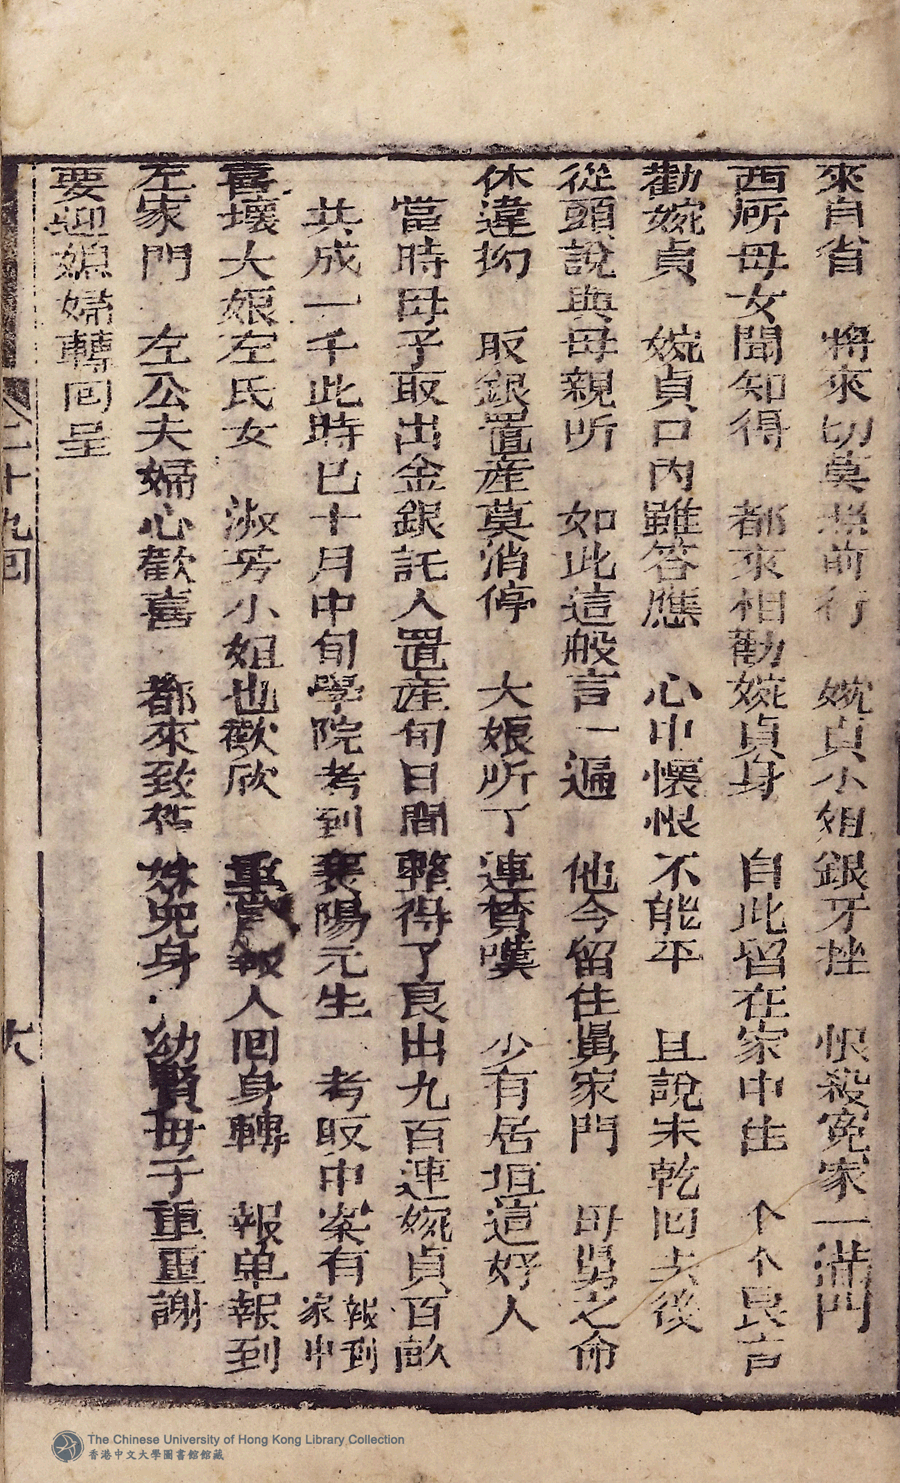 來自省 將來切莫照前行 婉貞小姐銀牙挫 恨殺冤家一滿門
西所母女聞知得 都來相勸婉貞身 自此留在家中住 个个良言
勸婉貞 婉貞口內雖答應 心中懷恨不能平 且說未乾回去後
從頭說與母親听 如此這般言一遍 他今留住舅家門 母舅之命
休違拗 取銀置産莫消停 大娘听了連賛嘆 少有居垣這好人
當時母子取出金銀託人置産旬日間整得了良出九百連婉貞百畝
共成一千此時已十月中旬學院考到襄陽元生 考取中案有報到家中
喜壞大娘左氏女 淑芳小姐也歡欣 重賞報人回身轉 報单報到
左家門 左公夫婦心歡喜 都來致 姝兜身 幼賢母子重重謝
要迎媳婦轉回呈
二十九回
六
The Chinese University of Hong Kong Library Collection
香港中文大學圖書館館藏